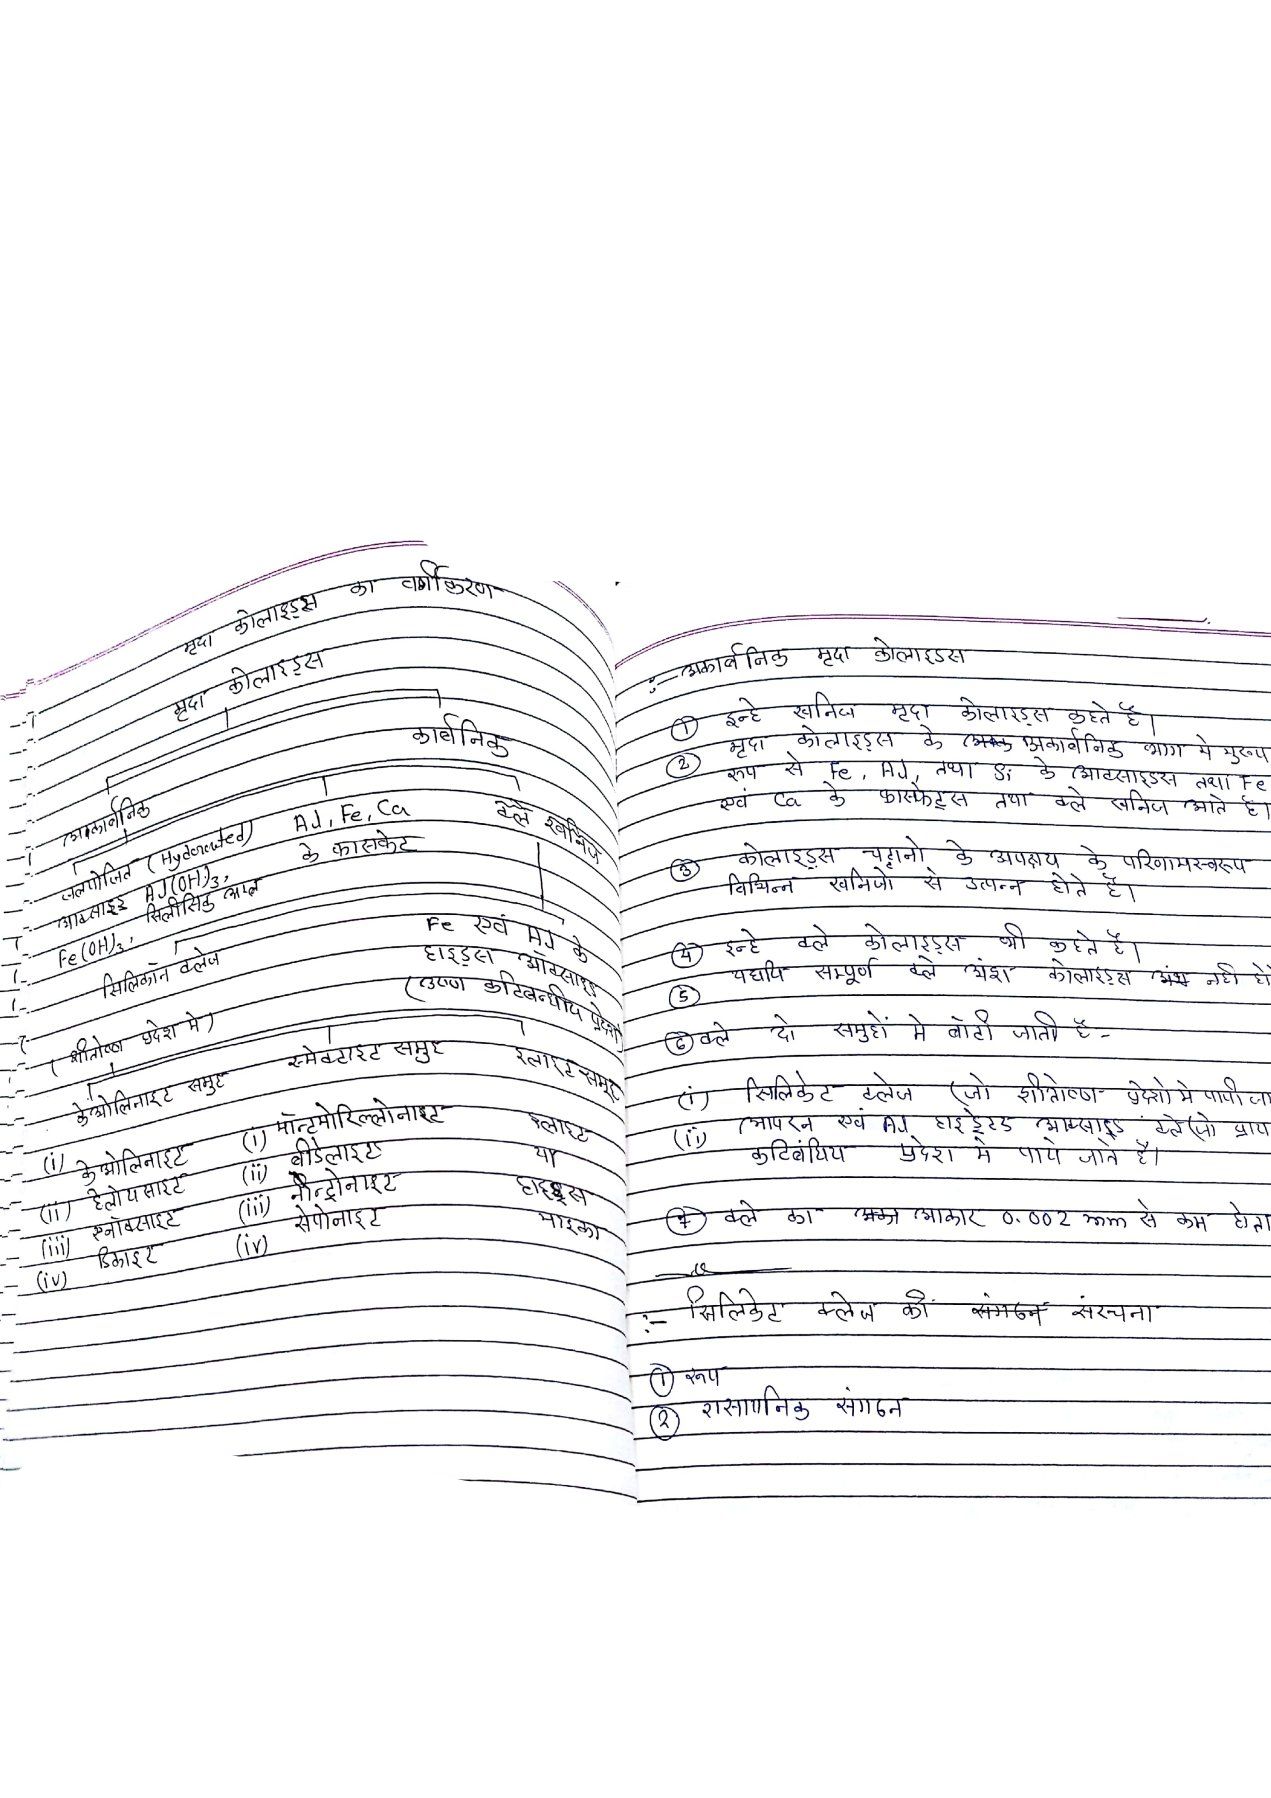 मृदा कोलाइड्स का वर्गीकरण
मृदा कोलाइड्स
अकार्वनिक
कार्वनिक
जलयोजित (Hydorated)
आक्साइड Al(OH)3,
Fe(OH)3, सिलीसिक अम्ल
Al, Fe, Ca
के फास्फेट
क्ले खनिज
सिलिकॉन क्लेज
(शीतोष्ण प्रदेश मे)
Fe एवं Al के
हाइड्स ऑक्साइड
(उष्ण कटिबन्धीय प्रदेश)
केओलिनाइट समुह
स्मेक्टाइट समुह
इलाइट-समूह
(i) केओलिनाइट
(ii) हेलोयसाइट
(iii) एनॉक्साइट
(iv) डिकाइट
(i) मॉन्टमोरिल्लोनाइट
(ii) बीडेलाइट
(iii) नौन्ट्रोनाइट
(iv) सेपोनाइट
इलाइट
या
हाइड्रस
माइका
:- अकार्वनिक मृदा कोलाइडस
① इन्हे खनिज मृदा कोलाइड्स कहते हैं।
② मृदा कोलाइड्स के अकार्वनिक भाग मे मुख्य
रूप से Fe, Al, तथा Si के आक्साइडस तथा Fe
एवं Ca के फास्फेट्स तथा क्ले खनिज आते है।
③ कोलाइड्स चट्टानो के अपक्षय के परिणामस्वरूप
विभिन्न खनिजो से उत्पन्न होते हैं।
④ इन्हे क्ले कोलाइड्स भी कहते हैं।
⑤ यद्यपि सम्पूर्ण क्ले अंश कोलाइड्स नही हो
⑥ क्ले दो समुहों मे बांटी जाती है -
(i) सिलिकेट क्लेज (जो शीतोष्ण प्रदेशो मे पायी जा
(ii) आयरन एवं Al हाइड्रेटेड आक्साइड क्ले (जो प्राय
कटिबंधिय प्रदेश मे पाये जाते हैं।
⑦ क्ले का आकार 0.002 mm से कम होता
:- सिलिकेट क्लेज की संगठन संरचना
① रूप
② रासायनिक संगठन